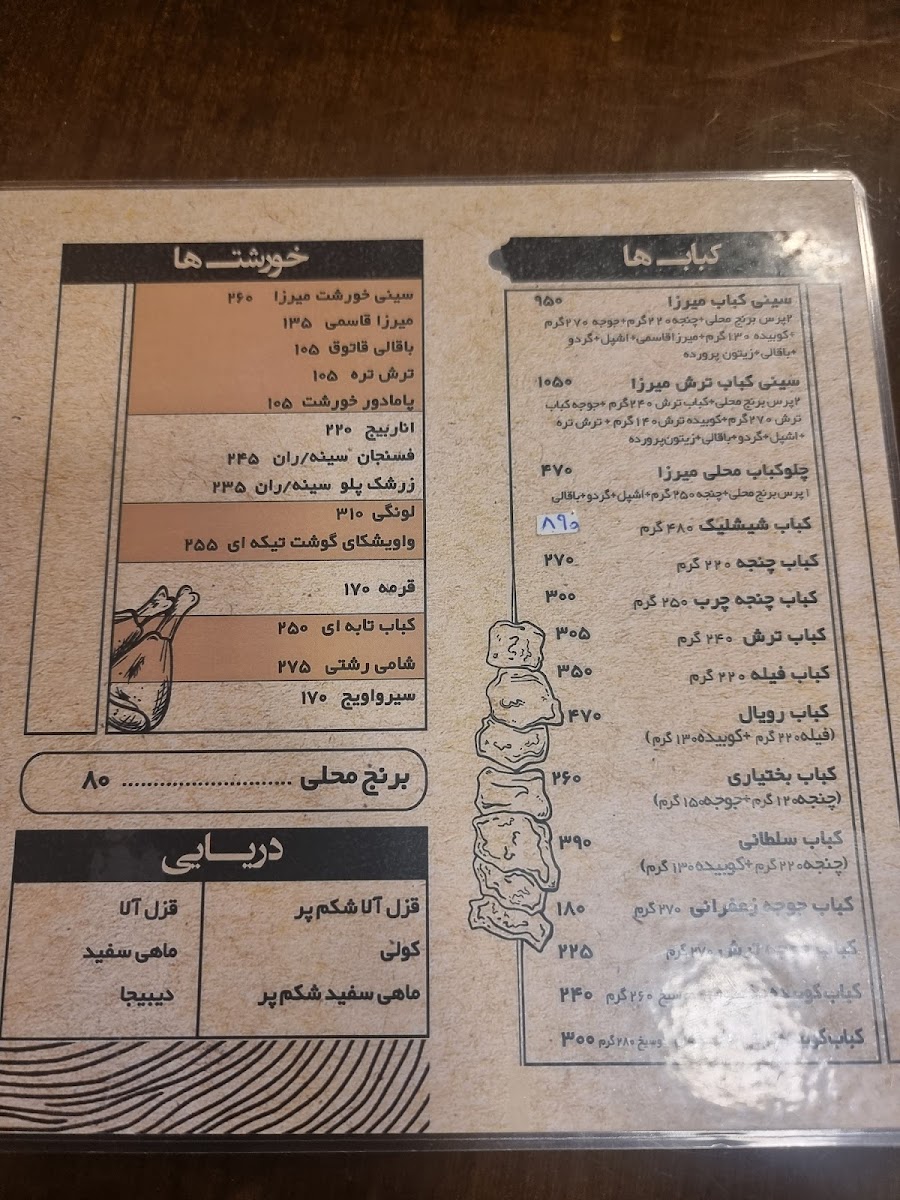 کباب ها
سینی کباب میرزا ۹۵۰
۲پرس برنج محلی+چنجه۲۲۰گرم+جوجه ۲۷۰گرم
+کوبیده ۱۳۰گرم+میرزاقاسمی+اشپل+گردو
+باقالی+زیتون پرورده
سینی کباب ترش میرزا ۱۰۵۰
۲پرس برنج محلی+کباب ترش ۲۴۰گرم+جوجه کباب
ترش ۲۷۰گرم+کوبیده ترش۱۴۰گرم+ترش تره
+اشپل+گردو+باقالی+زیتون‌پرورده
چلوکباب محلی میرزا ۴۷۰
۱پرس برنج محلی+چنجه ۲۵۰گرم+اشپل+گردو+باقالی
کباب شیشلیک ۴۸۰ گرم ۸۹۰
کباب چنجه ۲۲۰ گرم ۲۷۰
کباب چنجه چرب ۲۵۰ گرم ۳۰۰
کباب ترش ۲۴۰ گرم ۳۰۵
کباب فیله ۲۲۰ گرم ۳۵۰
کباب رویال ۴۷۰
(فیله۲۲۰گرم +کوبیده۱۳۰گرم)
کباب بختیاری ۲۶۰
(چنجه۱۲۰گرم+جوجه۱۵۰گرم)
کباب سلطانی ۳۹۰
(چنجه۲۲۰گرم+کوبیده۱۳۰گرم)
کباب جوجه زعفرانی ۲۷۰گرم ۱۸۰
کباب جوجه ترش ۲۷۰گرم ۲۲۵
کباب کوبیده ۲۶۰گرم ۲۴۰
کباب ۲۸۰گرم ۳۰۰
خورشت ها
سینی خورشت میرزا ۲۶۰
میرزا قاسمی ۱۳۵
باقالی قاتوق ۱۰۵
ترش تره ۱۰۵
پامادور خورشت ۱۰۵
اناربیج ۲۲۰
فسنجان سینه/ران ۲۴۵
زرشک پلو سینه/ران ۲۳۵
لونگی ۳۱۰
واویشکای گوشت تیکه ای ۲۵۵
قرمه ۱۷۰
کباب تابه ای ۲۵۰
شامی رشتی ۲۷۵
سیرواویج ۱۷۰
برنج محلی ........................... ۸۰
دریایی
قزل آلا شکم پر قزل آلا
کولی ماهی سفید
ماهی سفید شکم پر دیبیجا